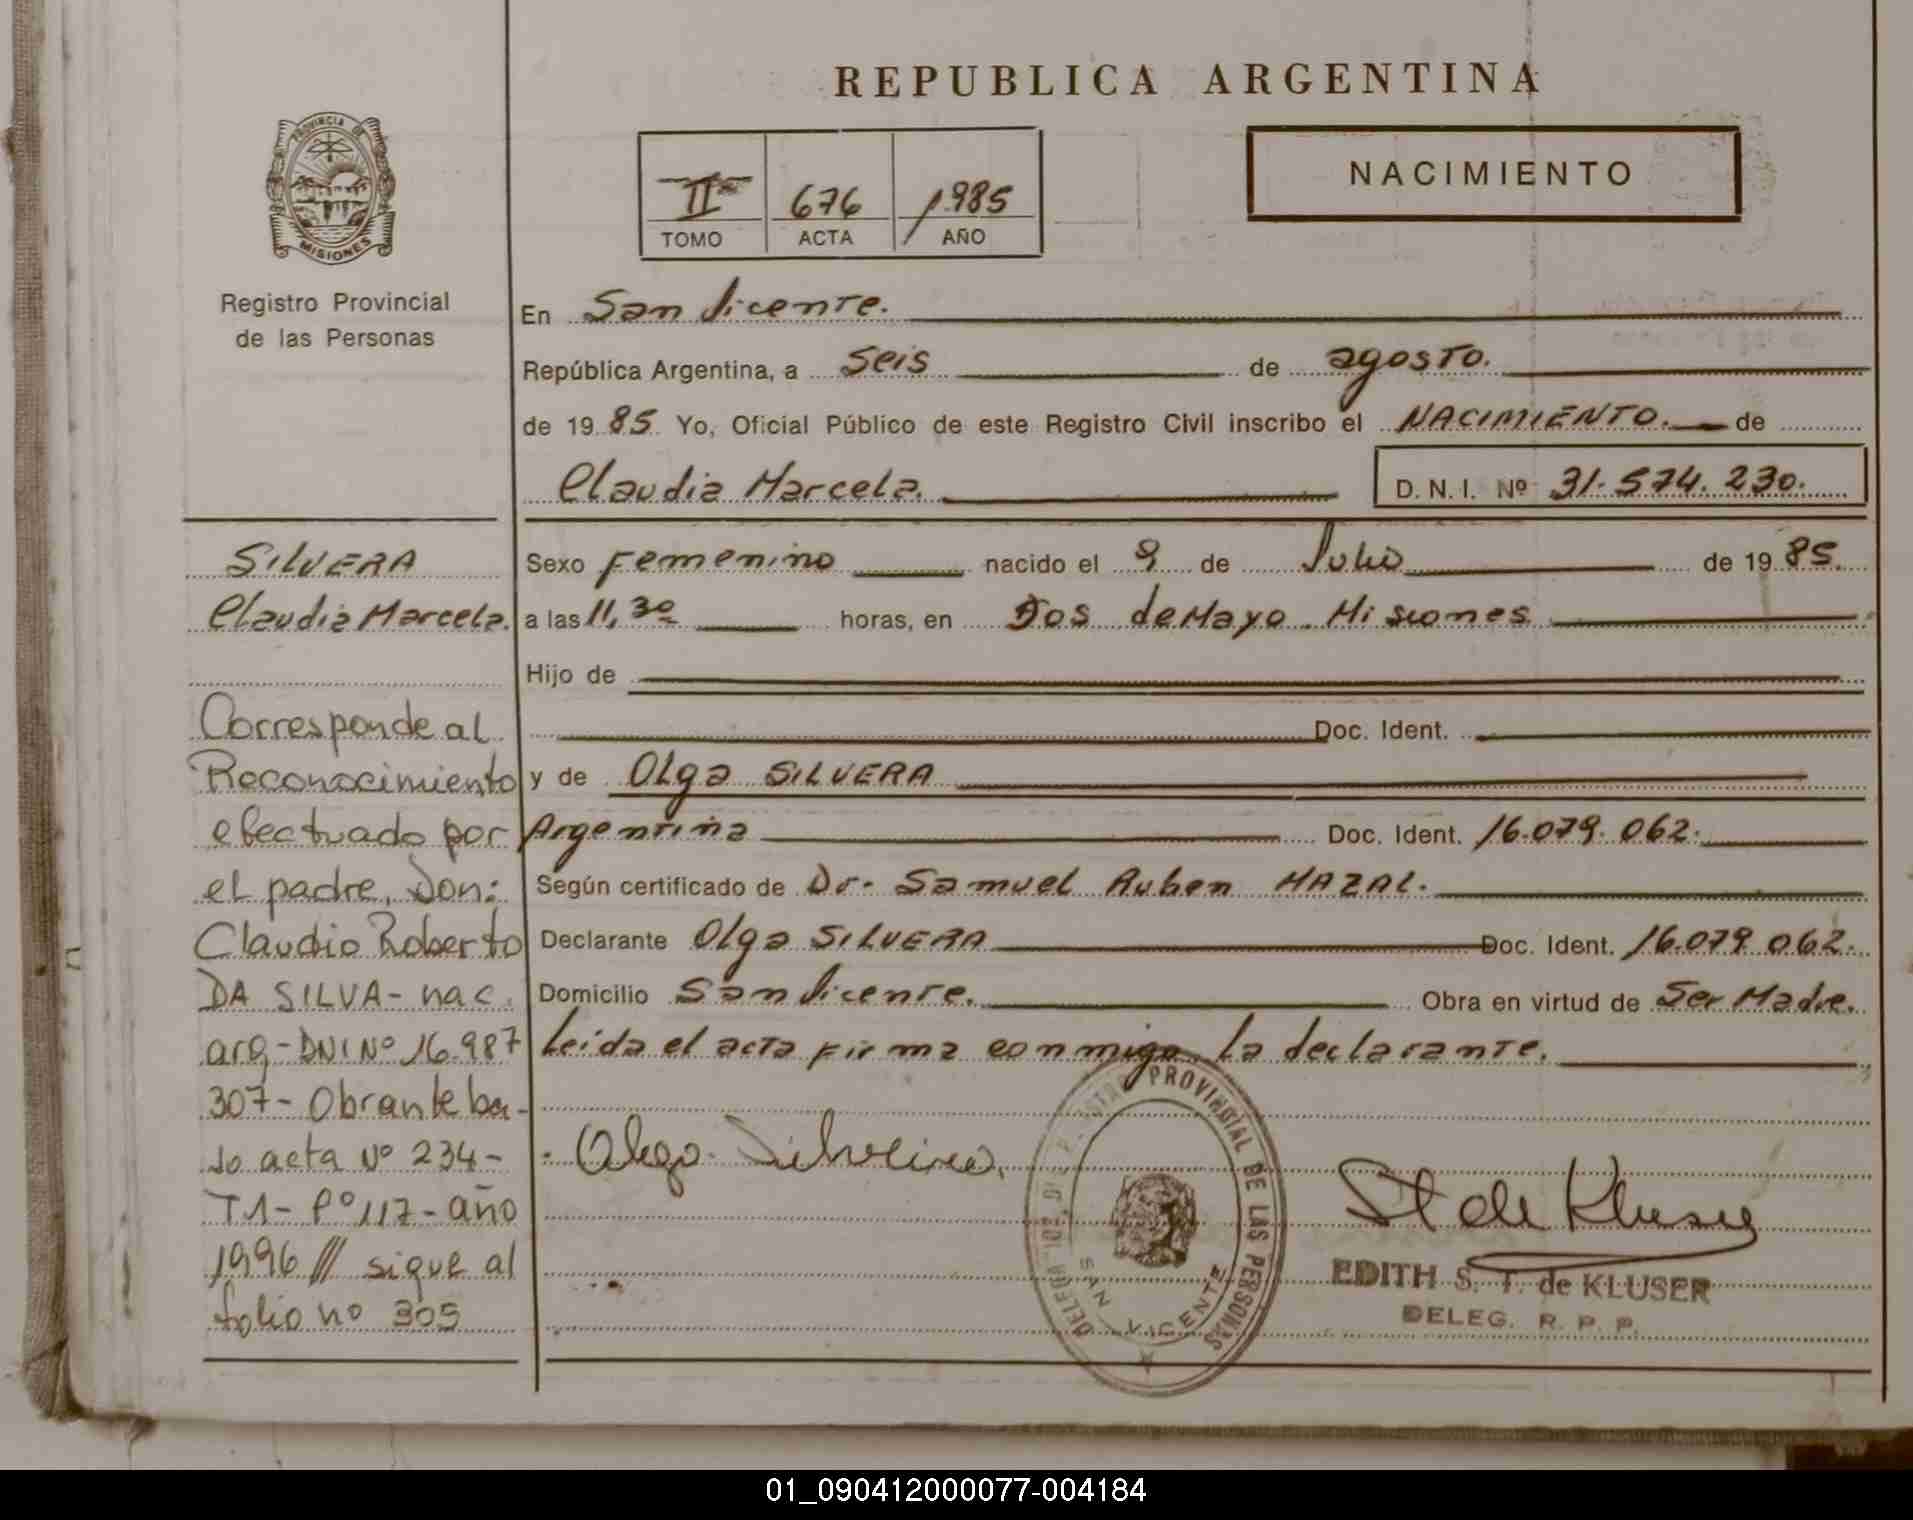 REPUBLICA ARGENTINA
PROVINCIA DE
MISIONES
Registro Provincial
de las Personas
II 676 1985
TOMO ACTA AÑO
NACIMIENTO
En San Vicente.
República Argentina, a Seis de agosto.
de 1985 Yo, Oficial Público de este Registro Civil inscribo el NACIMIENTO. de
Claudia Marcela. D. N. I. Nº 31.574.230.
Sexo Femenino nacido el 9 de Julio de 1985.
a las 11,30 horas, en Dos de Mayo. Misiones
Hijo de
Doc. Ident.
y de Olga SILVERA
Argentina Doc. Ident. 16.079.062.
Según certificado de Dr. Samuel Ruben MAZAL.
Declarante Olga SILVERA Doc. Ident. 16.079.062.
Domicilio San Vicente. Obra en virtud de Ser Madre.
Leida el acta firma conmigo la declarante.
SILVERA
Claudia Marcela.
Corresponde al
Reconocimiento
efectuado por
el padre, Don:
Claudio Roberto
DA SILVA - nac.
arg - DNI Nº 16.987
307 - Obrante ba-
jo acta Nº 234 -
T1 - Fº 117 - año
1996 /// sigue al
folio nº 305
PROVINCIAL DE LAS PERSONAS
SAN VICENTE
St de Kluser
EDITH S. T. de KLUSER
DELEG. R. P. P.
01_090412000077-004184